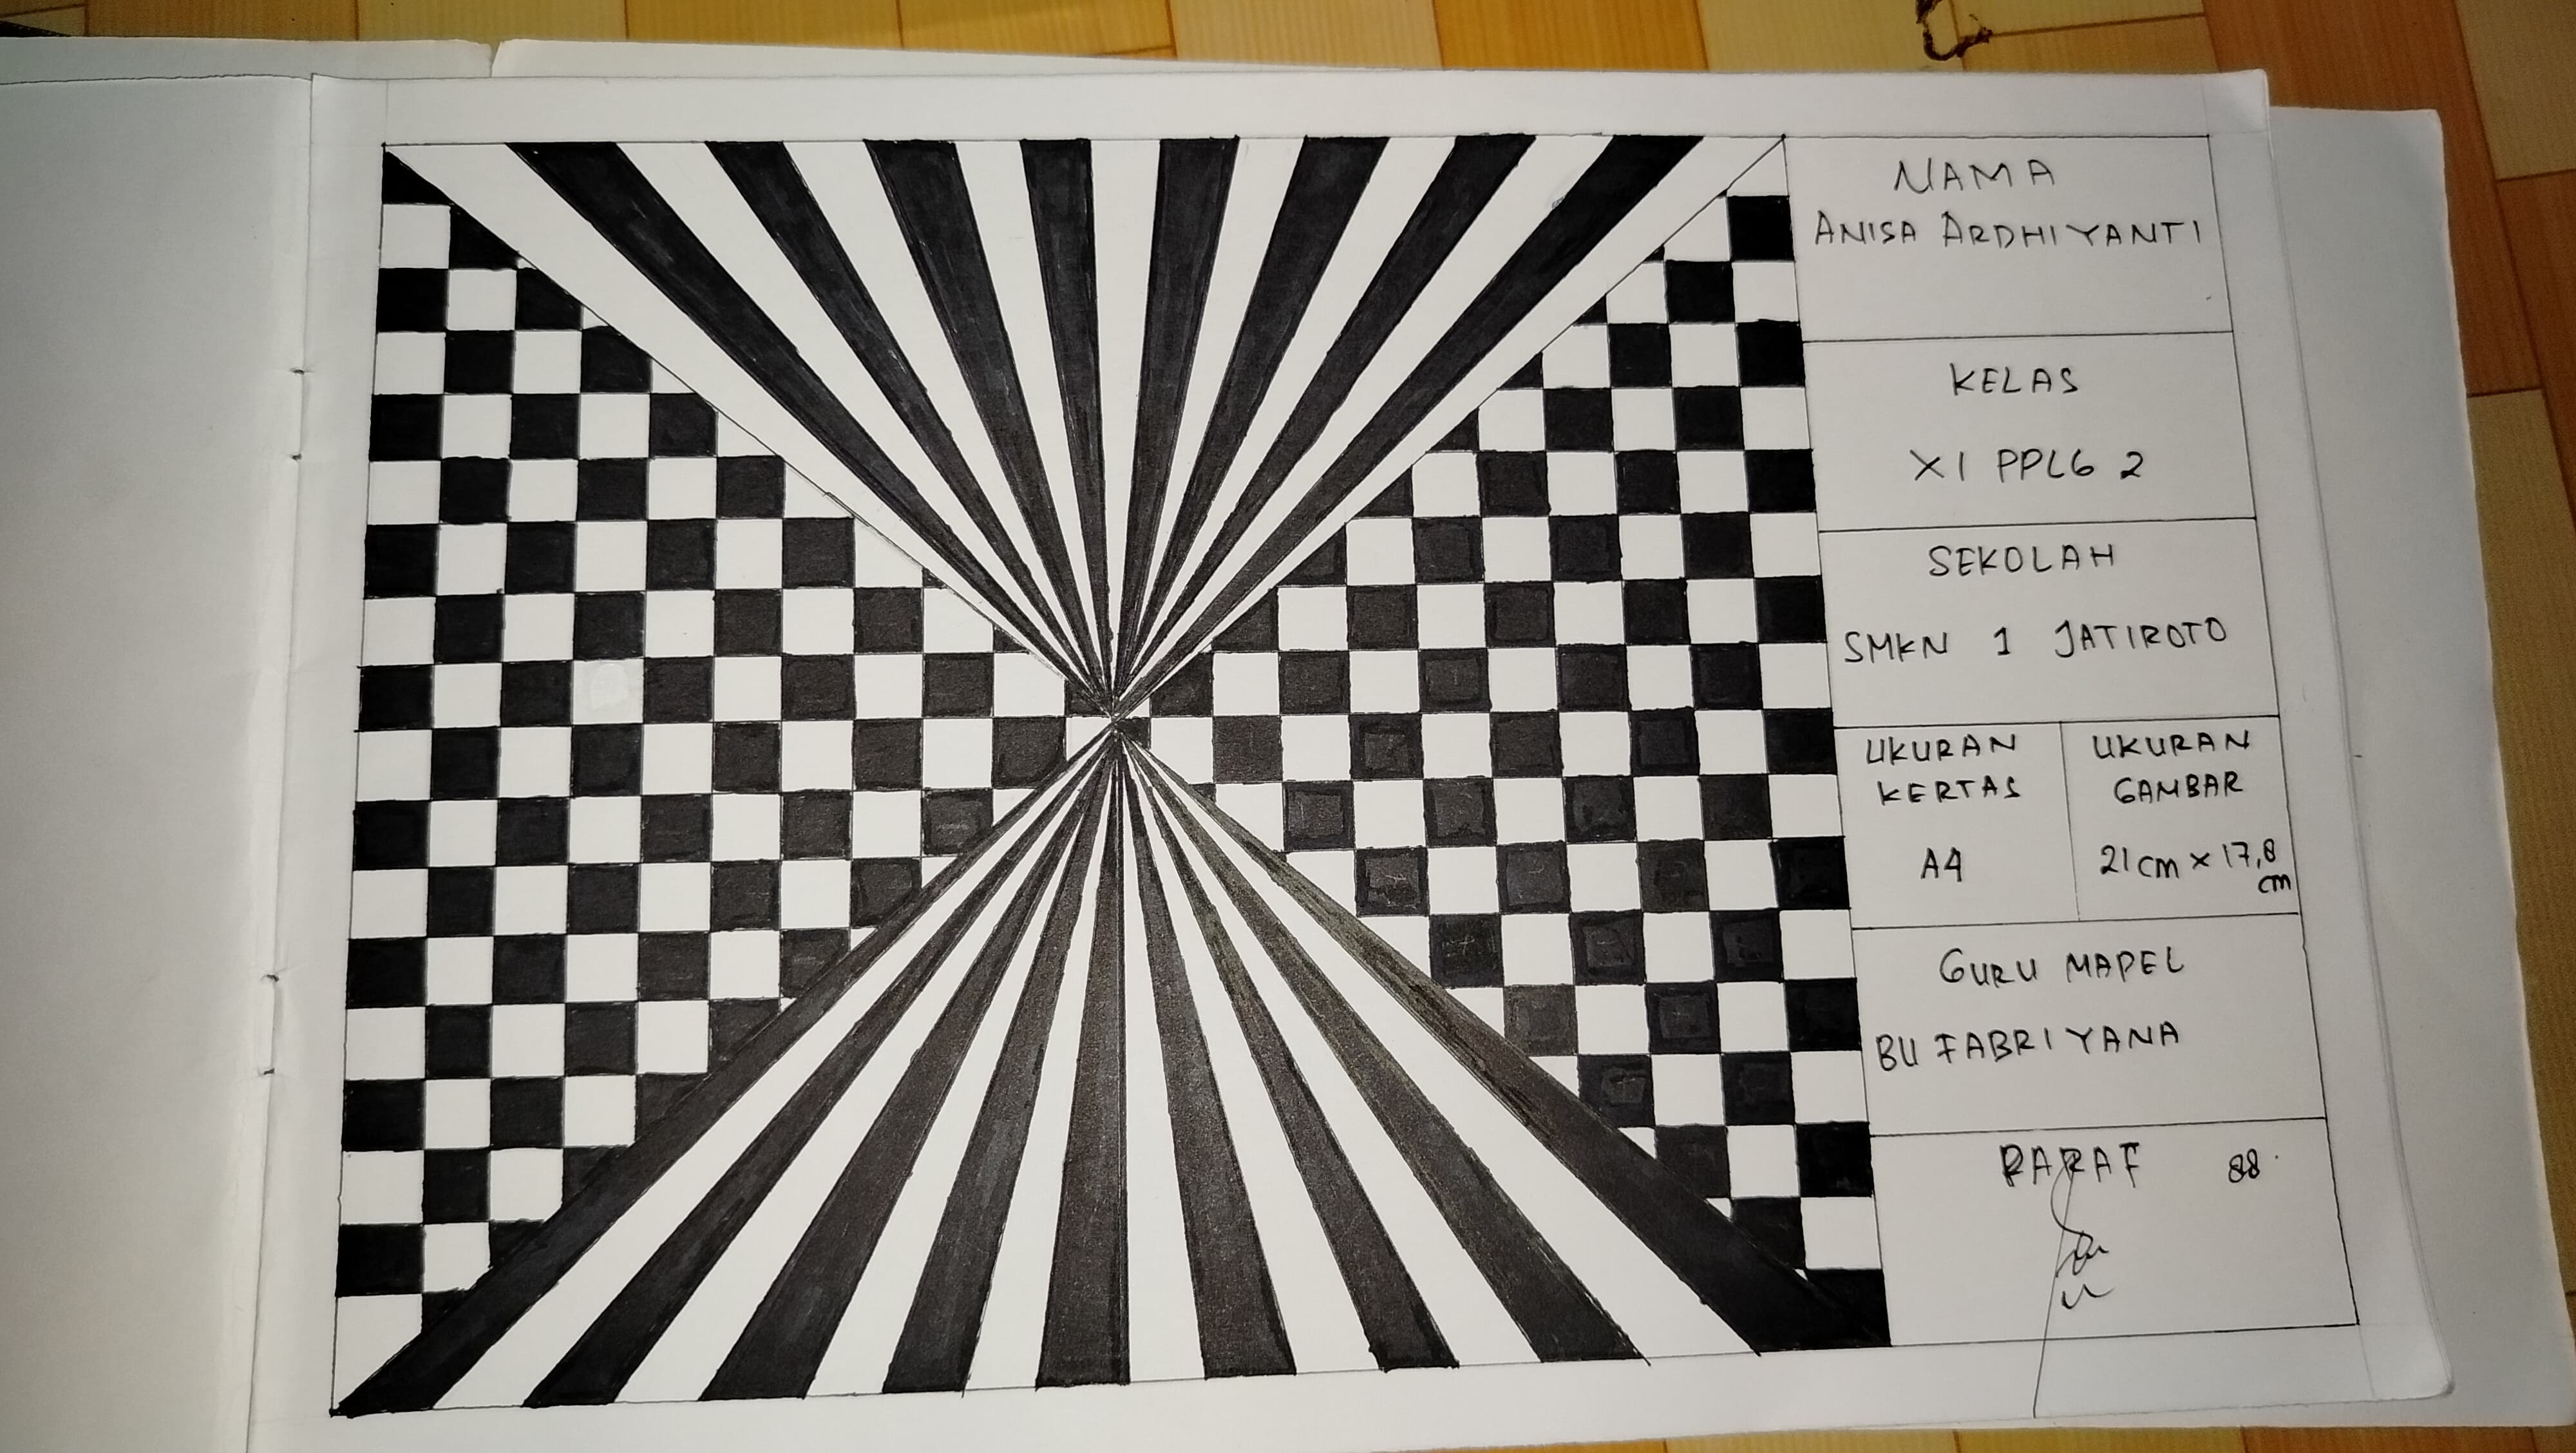 NAMA
ANISA ARDHIYANTI
KELAS
XI PPLG 2
SEKOLAH
SMKN 1 JATIROTO
UKURAN
KERTAS
A4
UKURAN
GAMBAR
21cm × 17,8
cm
GURU MAPEL
BU FABRIYANA
PARAF 88